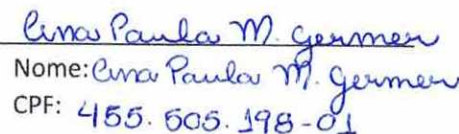 Ana Paula M. Germer
Nome: Ana Paula M. Germer
CPF: 455.505.198-01